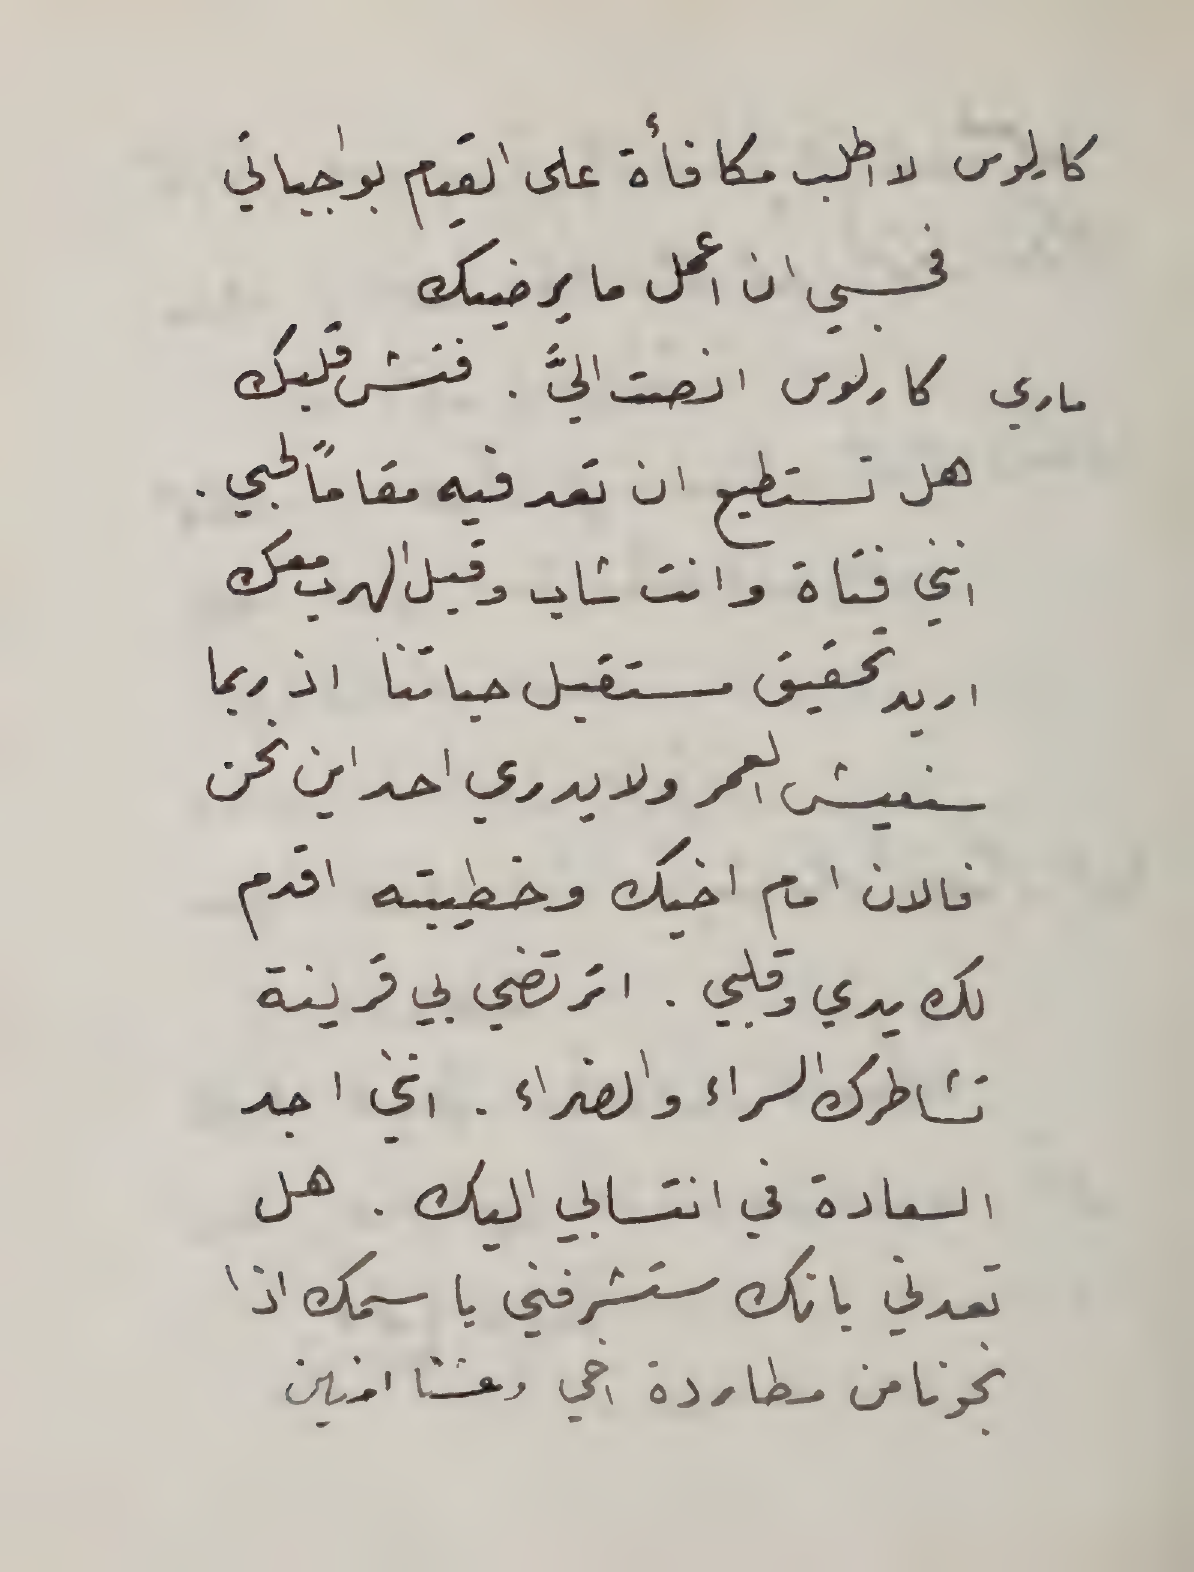 كارلوس لا اطلب مكافأة على القيام بواجباتي
فحسبي ان اعمل ما يرضيك
ماري كارلوس انصت اليَّ . فتش قلبك
هل تستطيع ان تعد فيه مقاماً لحبي .
انني فتاة وانت شاب وقبل الهرب معك
اريد تحقيق مستقبل حياتنا اذ ربما
سنعيش العمر ولا يدري احد اين نحن
فالان امام اخيك وخطيبته اقدم
لك يدي وقلبي . اترتضي بي قرينة
تشاطرك السراء والضراء . انني اجد
السعادة في انتسابي اليك . هل
تعدني بانك ستشرفني باسمك اذا
نجونا من مطاردة اخي وعشنا امنين